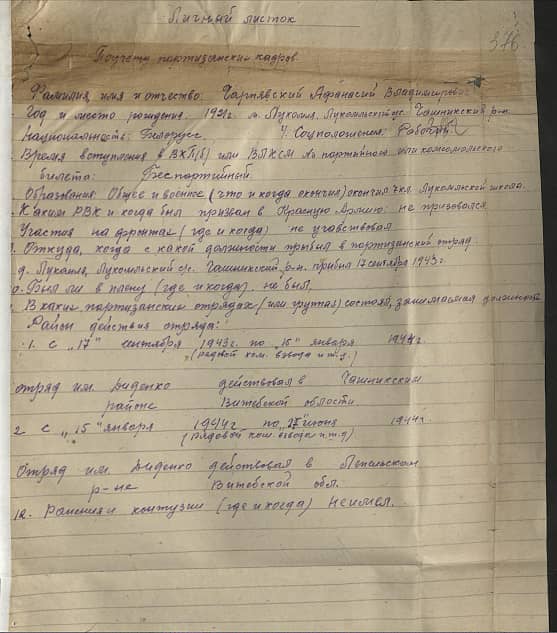 Личный листок
376
По учету партизанских кадров.
Фамилия, имя и отчество: Чарнявский Афанасий Владимирович
Год и место рождения. 1921г. м. Лукомля, Лукомльский с/с. Чашникский р-н.
Национальность: Белорусс. 4. Соцположения: Рабочий
Время вступления в ВКП(б) или ВЛКСМ № партийного или комсомольского
билета: Беспартийный
Образвания: Общее и военное (что и когда окончил) окончил 7 кл. Лукомльской школа.
Каким РВК и когда был призван в Красную Армию: не призовался
Участия на фронтах (где и когда) не учавствовал
Откуда, когда с какой должности прибыл в партизанский отряд.
д. Лукомля, Лукомльский с/с. Чашникский р-н. прибыл 17 сентября 1943г.
Был ли в плену (где и когда). не был.
В каких партизанских отрядах (или групах) состоял, занимаемая должность
Район действия отряда:
1. с „17" сентября 1943г. по „15" января 1944г.
(рядовой ком. взвода и т.д.)
отряд им. Диденко действовал в Чашникским
районе Витебской области
2 с „15" января 1944г по июня 1944г.
(рядовой ком. взвода и т.д)
Отряд им. Диденко действовал в Лепельском
р-не Витебской обл.
12. Ранения и контузии (где и когда) не имел.